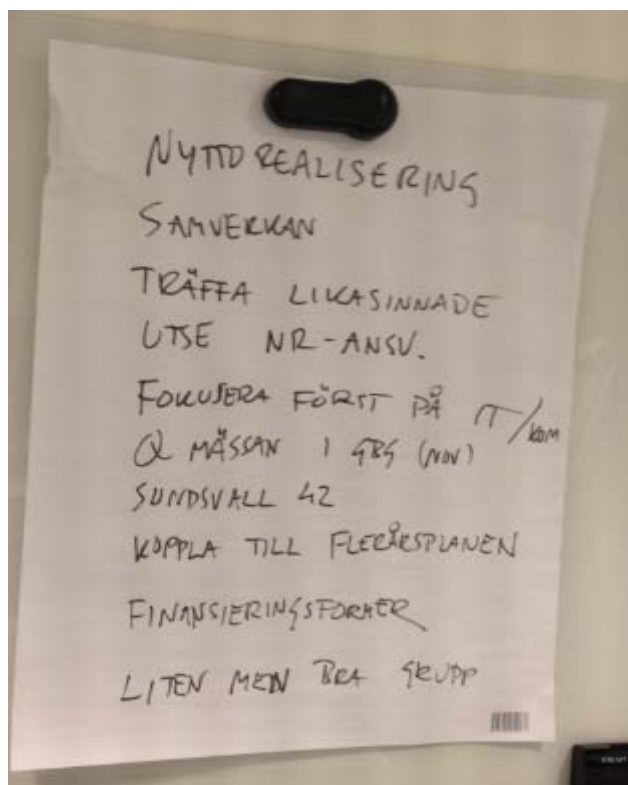 NYTTOREALISERING
SAMVERKAN
TRÄFFA LIKASINNADE
UTSE NR-ANSV.
FOKUSERA FÖRST PÅ IT/KOM
Q MÄSSAN I GBG (NOV)
SUNDSVALL 42
KOPPLA TILL FLERÅRSPLANEN
FINANSIERINGSFORMER
LITEN MEN BRA GRUPP